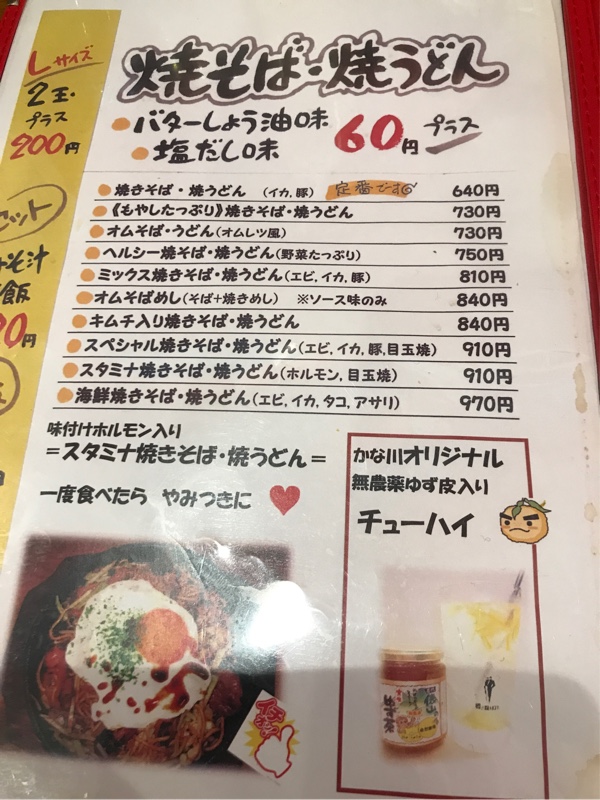 Lサイズ
2玉・
プラス
200円
焼そば・焼うどん
バターしょう油味
塩だし味
60円 プラス
焼きそば・焼うどん (イカ,豚) 定番です 640円
《もやしたっぷり》焼きそば・焼うどん 730円
オムそば・うどん(オムレツ風) 730円
ヘルシー焼そば・焼うどん(野菜たっぷり) 750円
ミックス焼きそば・焼うどん(エビ,イカ,豚) 810円
オムそばめし(そば+焼きめし) ※ソース味のみ 840円
キムチ入り焼きそば・焼うどん 840円
スペシャル焼きそば・焼うどん(エビ,イカ,豚,目玉焼) 910円
スタミナ焼きそば・焼うどん(ホルモン,目玉焼) 910円
海鮮焼きそば・焼うどん(エビ,イカ,タコ,アサリ) 970円
セット
そ汁
飯
0円
味付けホルモン入り
=スタミナ焼きそば・焼うどん=
一度食べたら やみつきに
かな川オリジナル
無農薬ゆず皮入り
チューハイ